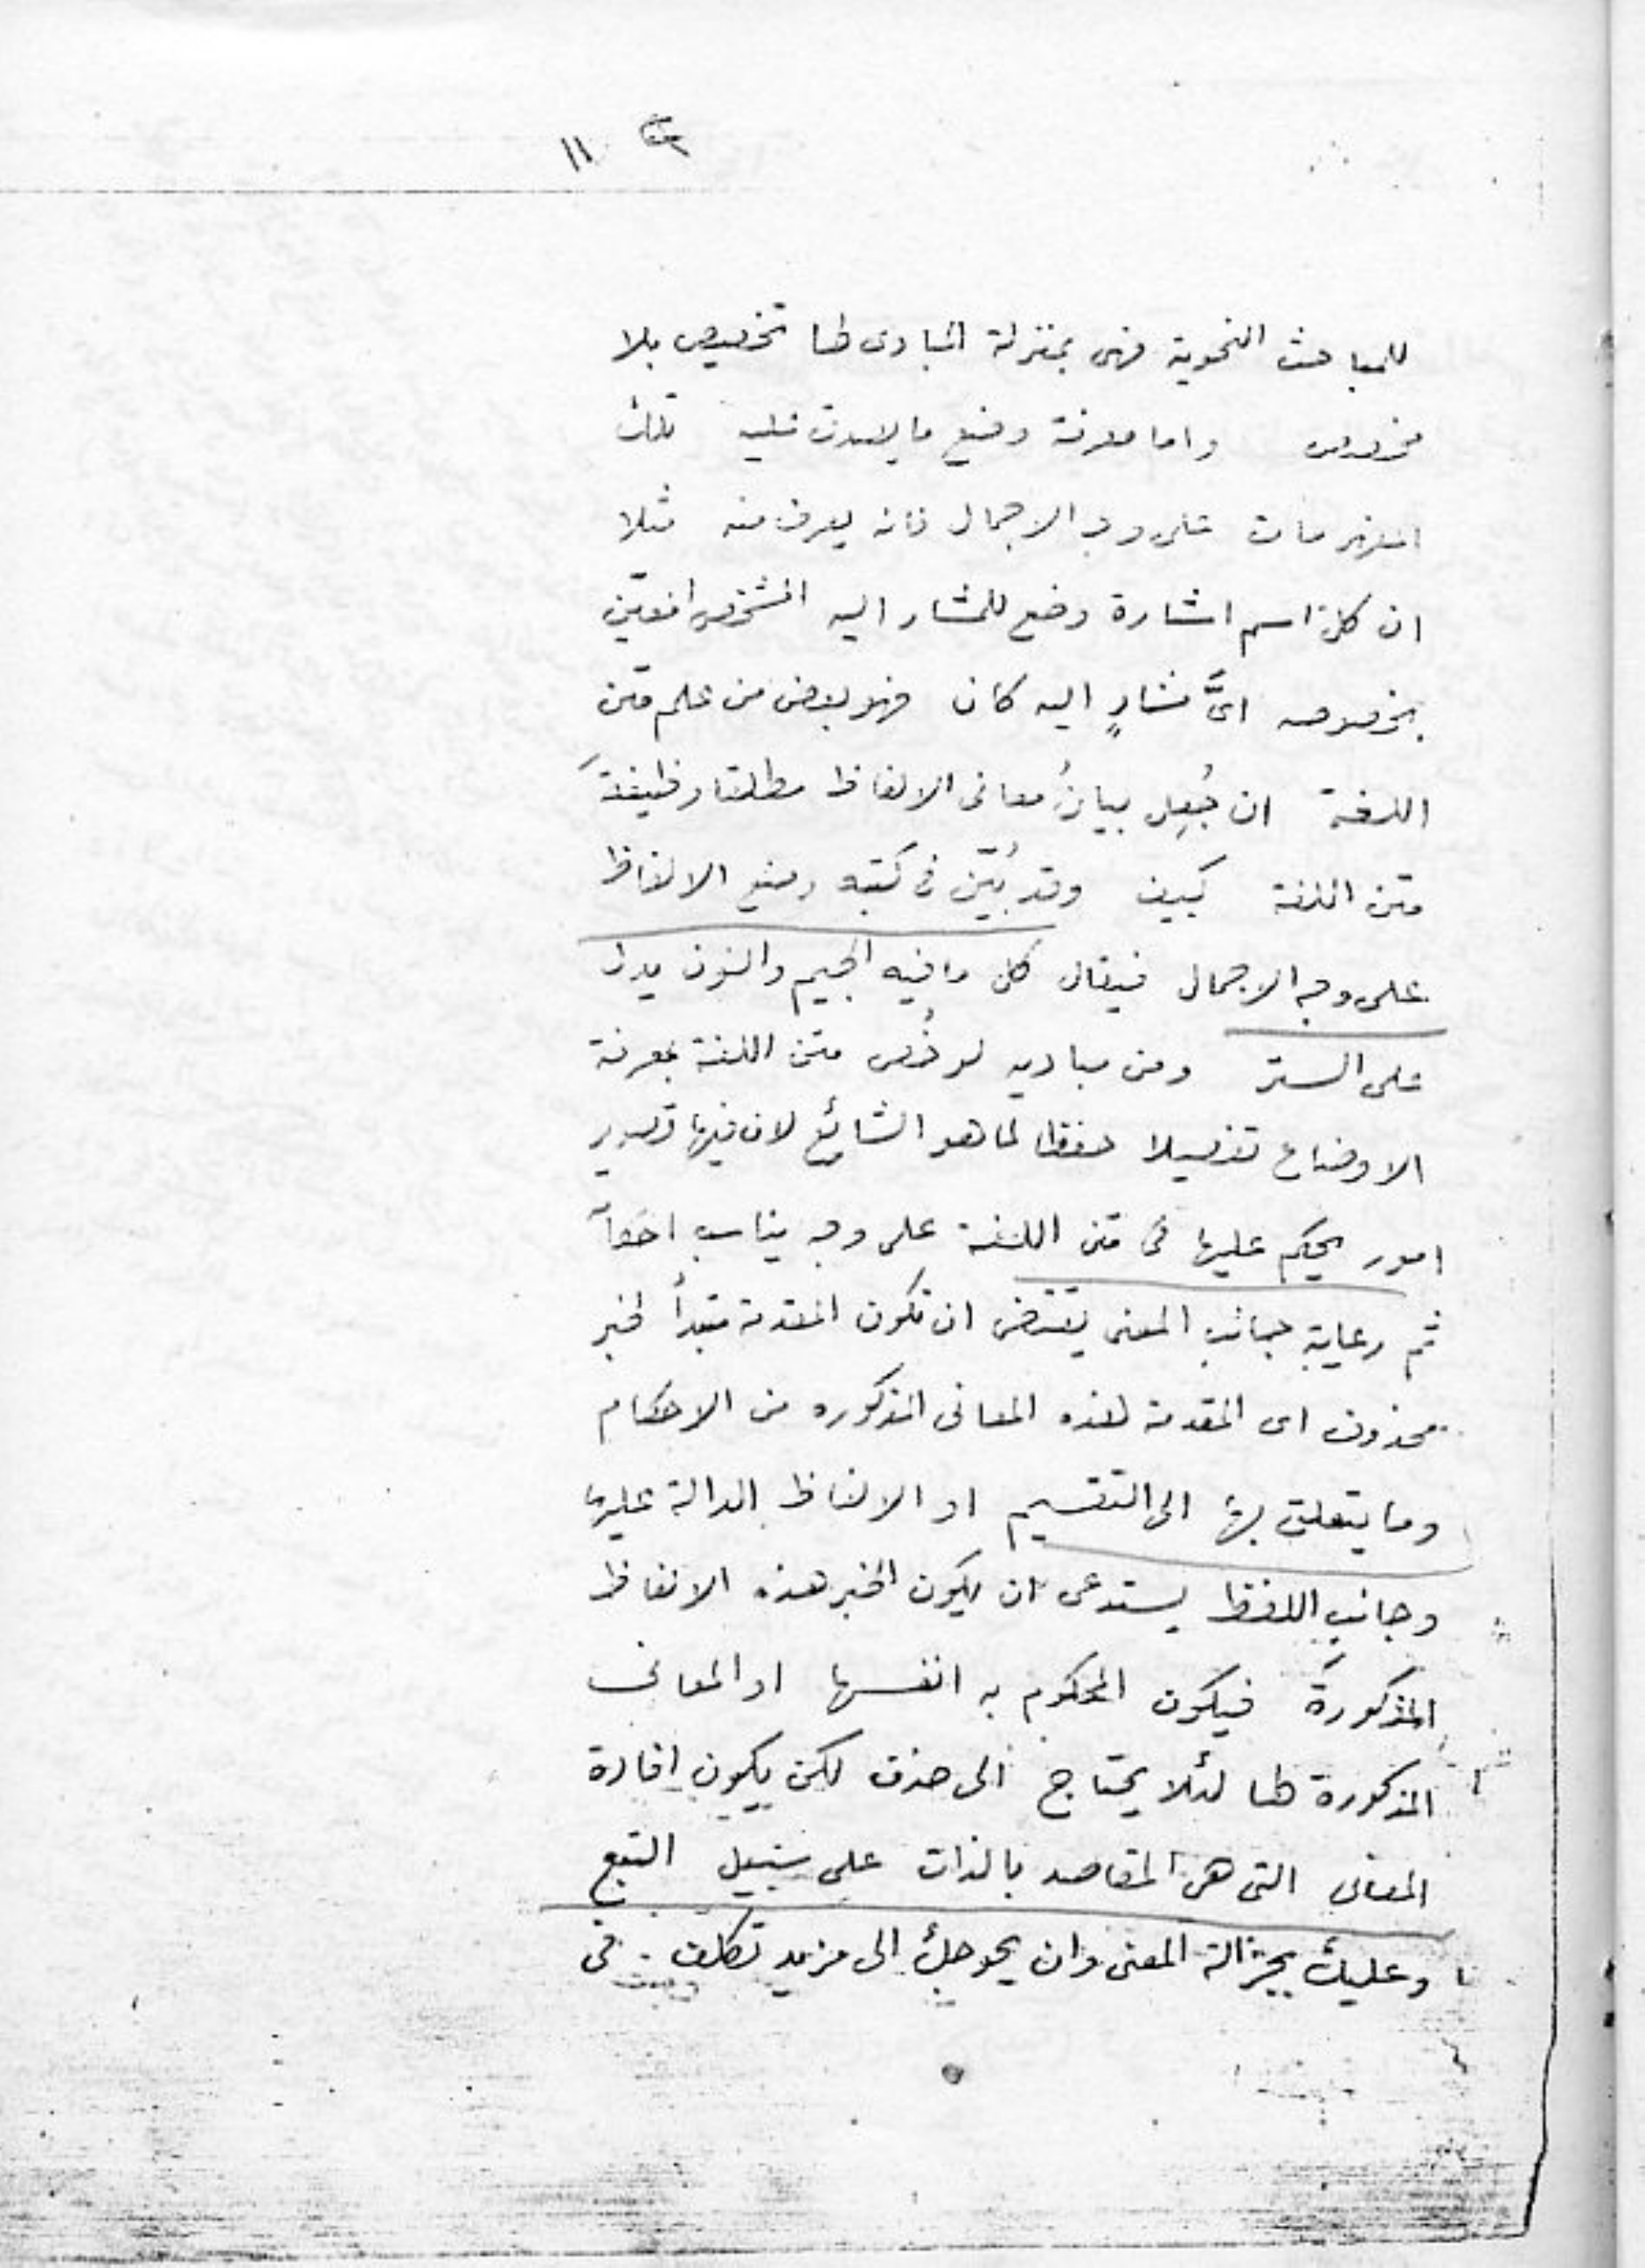 ١١
للمباحث النحوية فهى بمنزلة المبادى لها تخصيص بلا
مخصص واما معرفة وضع ما يصدق عليه تلك
المفهومات على وجه الاجمال فانه يعرف منه مثلا
ان كل اسم اشارة وضع للمشار اليه المشخص المعين
بخصوصه اىَّ مشارٍ اليه كان فهو بعض من علم متن
اللغة ان جُعِل بيانُ معانى الالفاظ مطلقا وظيفةَ
متن اللغة كيف وقد بُيّن فى كتبه وضع الالفاظ
على وجه الاجمال فيقال كل ما فيه الجيم والنون يدل
على الستر ومن مباديه لو خُص متن اللغة بمعرفة
الاوضاع تفصيلا حفظا لما هو الشائع لان فيها تصوير
امور يحكم عليها فى متن اللغة على وجه يناسب
ثم رعاية جانب المعنى يقتضى ان تكون المقدمة مبتدأ لخبر
محذوف اى المقدمة هذه المعانى المذكوره من الاحكام
وما يتعلق بها الى التقسيم او الالفاظ الدالة عليها
وجانب اللفظ يستدعى ان يكون الخبر هذه الالفاظ
المذكورةَ فيكون المحكوم به انفسها او المعانى
المذكورة لها لئلا يحتاج الى حذف لكن يكون افادة
المعانى التى هى المقاصد بالذات على سبيل التبع
وعليك بجزالة المعنى وان يحوجك الى مزيد تكلف فى